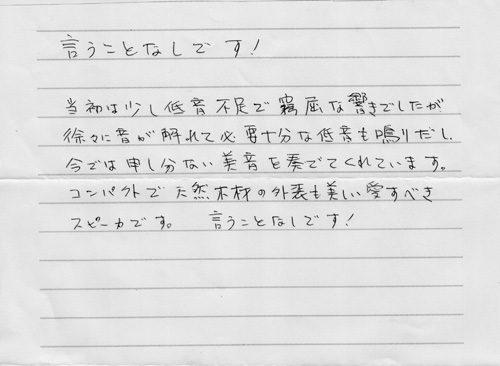 言うことなしです!
当初は少し低音不足で窮屈な響きでしたが
徐々に音が解れて必要十分な低音も鳴りだし、
今では申し分ない美音を奏でてくれています。
コンパクトで天然木材の外装も美しい愛すべき
スピーカです。 言うことなしです!